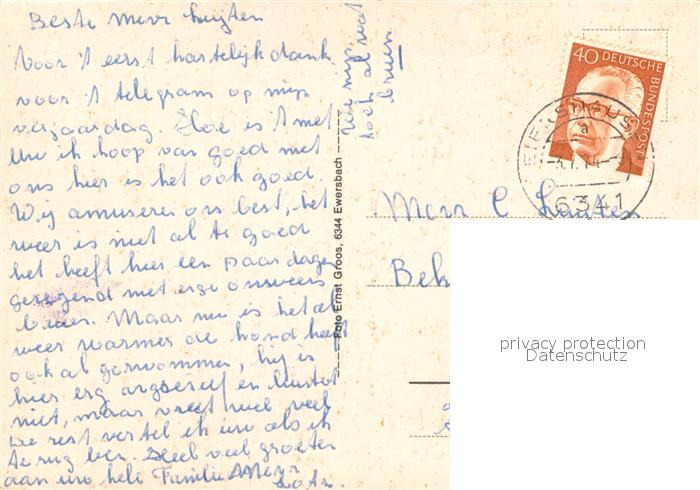 Beste Mevr Luyten
Voor 't eerst hartelijk dank
voor 't telegram op mijn
verjaardag. Hoe is 't met
Uw ik hoop van goed met
ons hier is het ook goed.
Wij amuseren ons best, het
weer is niet al te goed
het heeft hier een paar dagen
geregend met erge onweers
buien. Maar nu is het al
weer warmer de hond heeft
ook al gezwommen, hij is
hier erg en luistert
niet, maar vreet heel veel
De rest vertel ik uw als ik
terug ben. Heel veel groeten
aan uw hele Familie Mevr
zijn
toch al wat
bruin
Foto Ernst Groos, 6344 Ewersbach
40 DEUTSCHE BUNDESPOST
EIERSHAUSEN
a
6341
Mevr C Luyten
privacy protection
Datenschutz